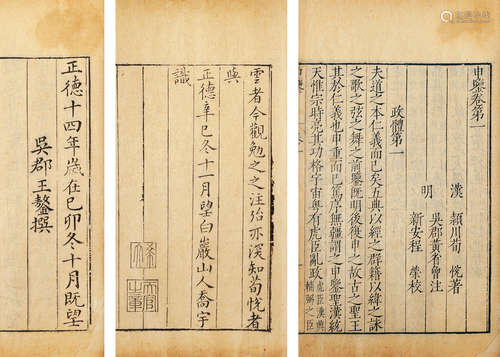 申鑒卷第一
漢 潁川荀 悅著
吳郡黃省曾注
明
新安程 榮校
政體第一
夫道之本仁義而已矣五典以經之群籍以緯之詠
之歌之弦之舞之前鑒既明後復申之故古之聖王
其於仁義也申重而已篤序無疆謂之申鑒聖漢統
天惟宗時亮其功格宇宙粵有虎臣亂政
雲者今觀勉之之注殆亦深知荀悅者
與
正德辛巳冬十一月望白巖山人喬宇
識
正德十四年歲在己卯冬十月既望
吳郡王鏊撰